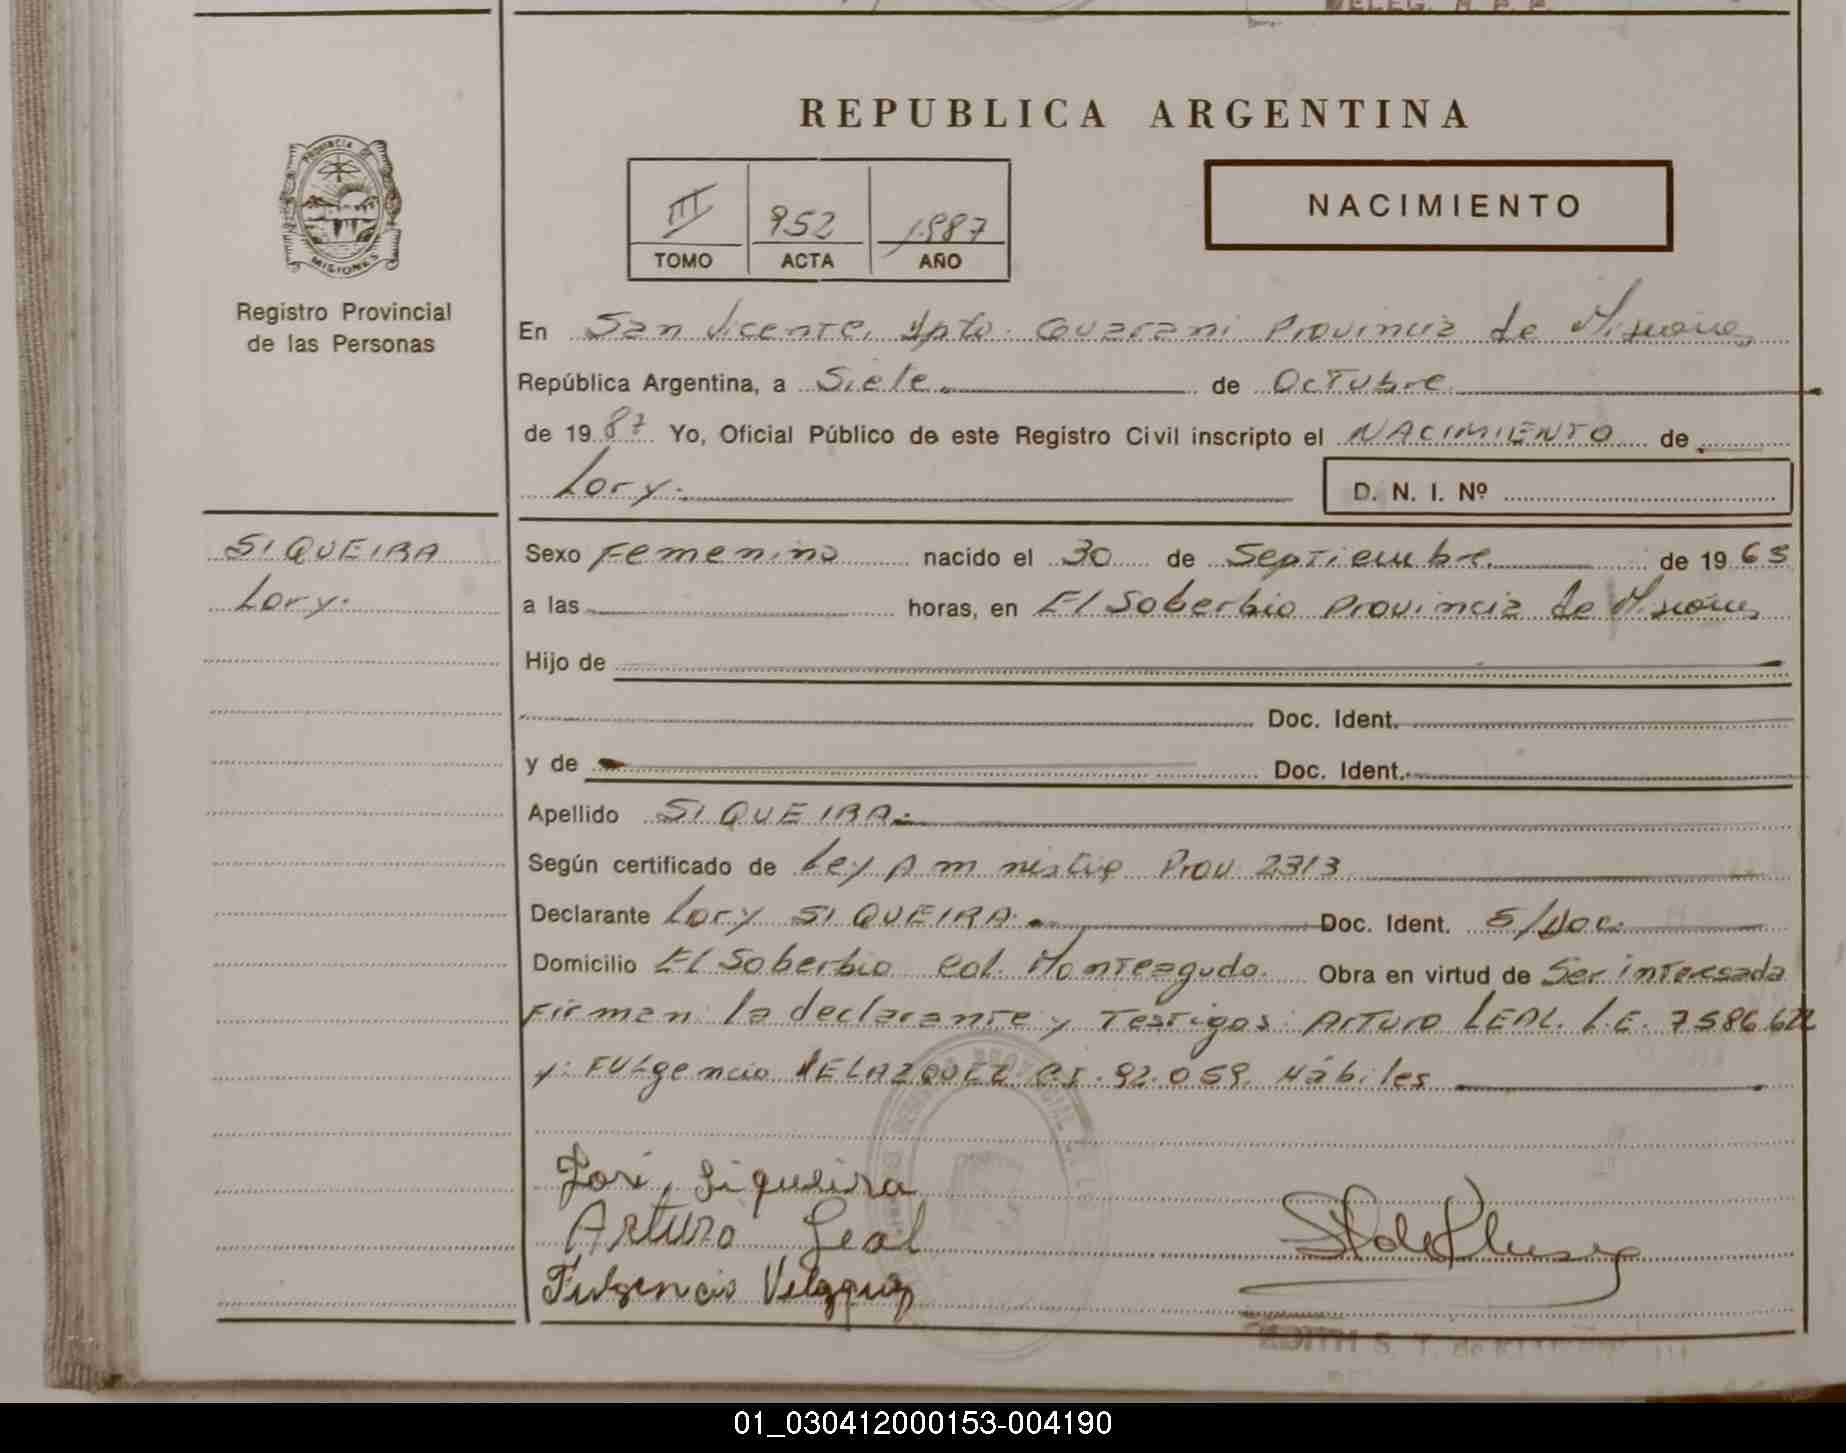 DELEG. R. P. P.
REPUBLICA ARGENTINA
PROVINCIA DE
MISIONES
III 952 1987
TOMO ACTA AÑO
NACIMIENTO
Registro Provincial
de las Personas
En San Vicente, Dpto. Guarani Provincia de Misiones
República Argentina, a Siete. de Octubre
de 1987 Yo, Oficial Público de este Registro Civil inscripto el NACIMIENTO de
Lory.
D. N. I. Nº
SIQUEIRA
Lory.
Sexo Femenino nacido el 30 de Septiembre. de 1965
a las horas, en El Soberbio Provincia de Misiones
Hijo de
Doc. Ident.
y de Doc. Ident.
Apellido SIQUEIRA.
Según certificado de Ley Amnistia Prov. 2313
Declarante Lory SIQUEIRA. Doc. Ident. S/Doc.
Domicilio El Soberbio Col. Monteagudo. Obra en virtud de Ser interesada
Firman la declarante y Testigos: Arturo LEAL. L.E.
y: FULgencio VELAZQUEZ C.I. 92.059. Hábiles
Lori, Siqueira
Arturo Leal
Fulgencio Velazquez
S. T. de
01_030412000153-004190